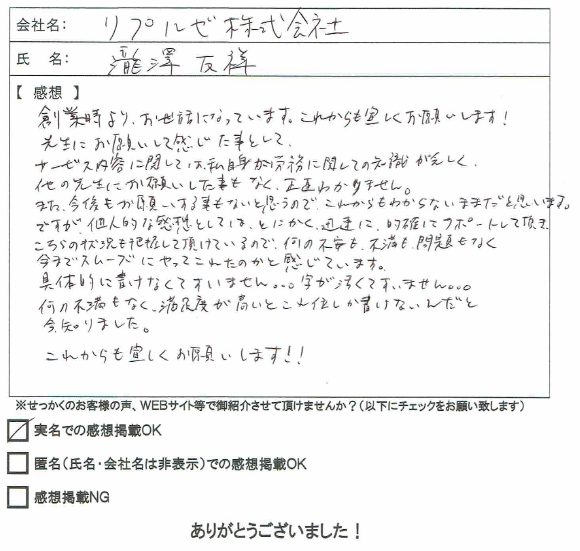 会社名: リプルゼ株式会社
氏 名: 瀧澤 友祥
【 感想 】
創業時より、お世話になっています。これからも宜しくお願いします!
先生にお願いして感じた事として、
サービス内容に関しては、私自身が労務に関しての知識が乏しく、
他の先生にお願いした事もなく、正直わかりません。
また、今後もお願いする事もないと思うので、これからもわからないままだと思います。
ですが、個人的な感想としては、とにかく、迅速に、的確にサポートして頂き
こちらの状況も把握して頂けているので、何の不安も、不満も、問題もなく
今までスムーズにやってこれたのかと感じています。
具体的に書けなくてすいません...字が汚くてすいません...
何の不満もなく、満足度が高いとこれ位しか書けないんだと
今知りました。
これからも宜しくお願いします!!
※せっかくのお客様の声、WEBサイト等で御紹介させて頂けませんか?(以下にチェックをお願い致します)
実名での感想掲載OK
匿名(氏名・会社名は非表示)での感想掲載OK
感想掲載NG
ありがとうございました!